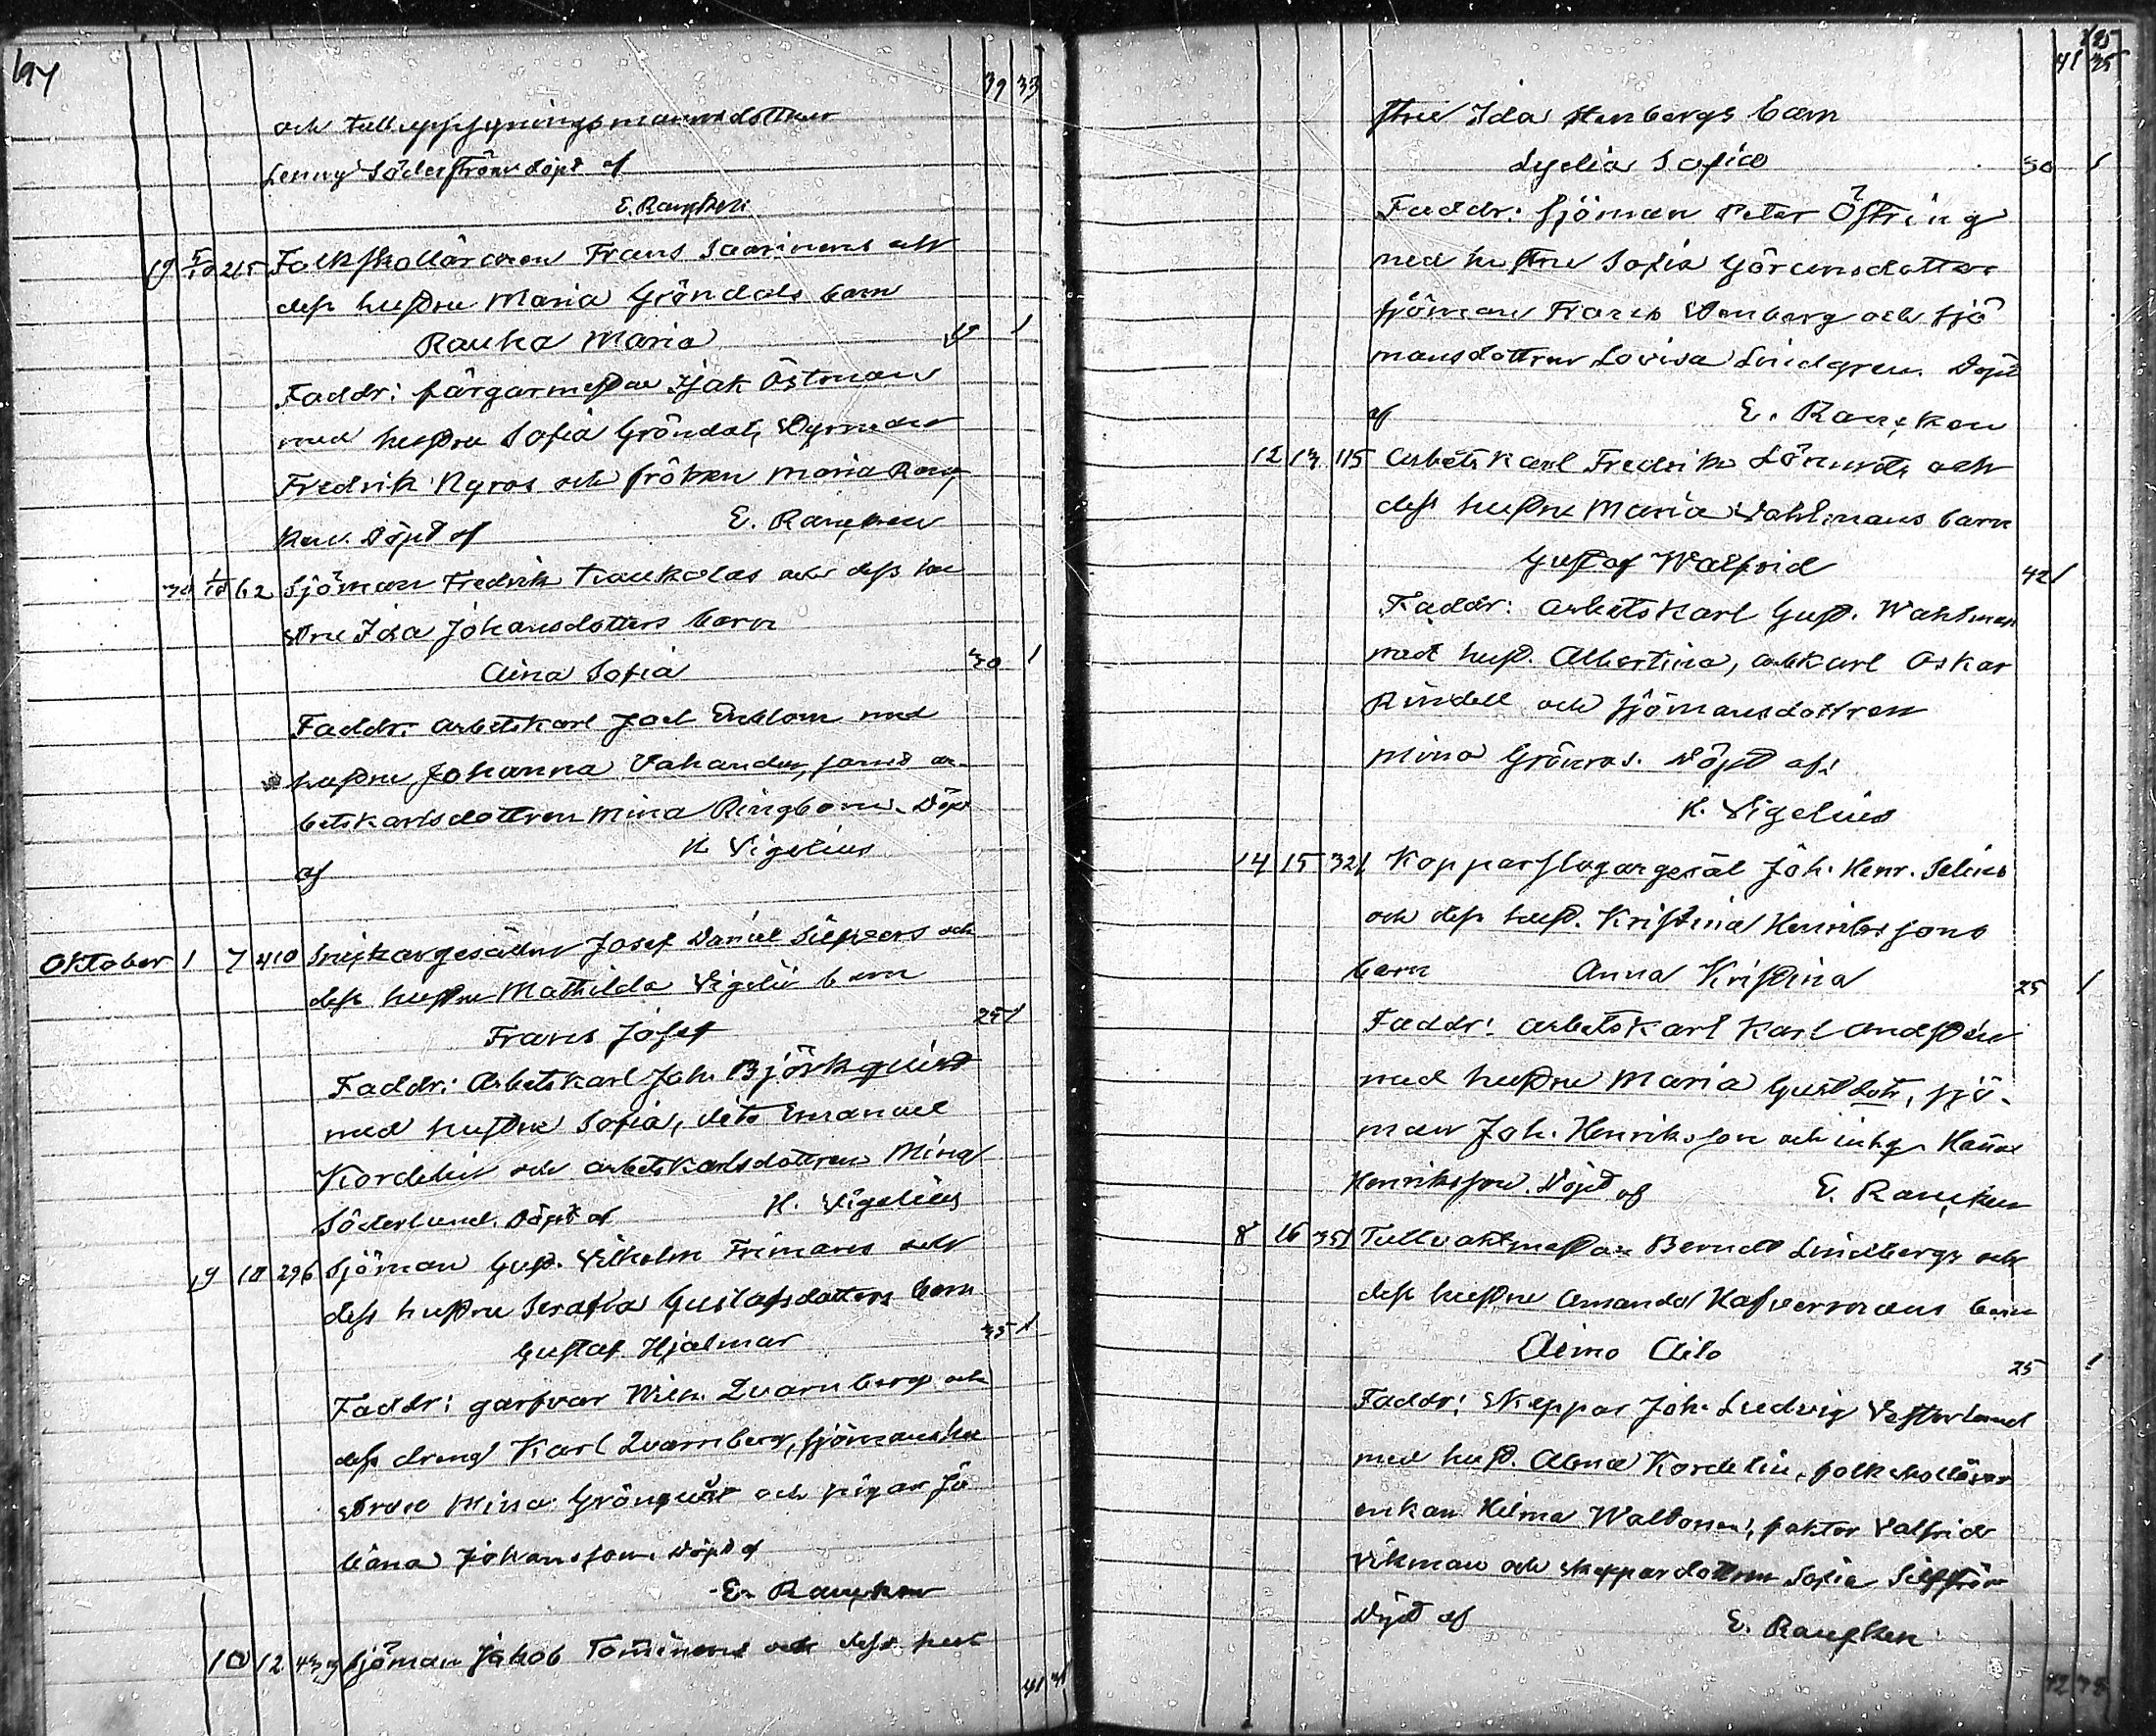 194
39 33
och tulluppsyningsmannsdottren
Lenny Söderström döpt af
E. Rancken
19 5/10 215 Folkskolläraren Frans Saarinens och
dess hustru Maria Gröndals barn
Rauha Maria 1
Faddr: färgarmestar Isak Östman
med hustru Sofia Gröndal,
Fredrik Nyros och fröken Maria Ranc
ken. Döpt af E. Rancken
30 1/10 62 Sjöman Fredrik och dess hu
stru Ida Johansdotters barn
Aina Sofia 30 1
Faddr: arbetskarl Joel Enblom med
hustru Johanna samt ar-
betskarlsdottren Mina Ringbom. Döpt
af H. Vigelius
Oktober 1 7 410 Snickargesällen Josef Daniel och
dess hustru Mathilda barn
Frans Josef 25 1
Faddr: Arbetskarl Joh. Björkqvist
med hustru Sofia, dito Emanuel
Kordelin och arbetskarlsdottren Mina
Söderlund. Döpt af H. Vigelius
9 10 296 Sjöman Gust. Vilhelm Frimans och
dess hustru Serafia Gustafsdotters barn
Gustaf Hjalmar 35 1
Faddr: garfvar Wilh. Qvarnberg och
dess dreng Karl Qvarnberg, sjömanshu
strun Mina Grönqvist och pigan Ju
liana Johansson. Döpt af
E. Rancken
10 12 439 sjöman Jakob Tominens och dess hu
41 34
195
41 35
stru Ida Stenbergs barn
Lydia Sofia 30 1
Faddr: Sjöman Peter Östring
med hustru Sofia Göransdotter
sjöman Frans Stenberg och sjö
mansdottren Lovisa Lindgren. Döpt
af E. Rancken
12 13 115 Arbetskarl Fredrik och
dess hustru Maria Wahlmans barn
Gustaf Walfrid 42 1
Faddr: arbetskarl Gust. Wahlman
med hust. Albertina, arbkarl Oskar
Rindell och sjömansdottren
Mina Grönros. Döpt af:
H. Vigelius
14 15 321 Kopparslagargesäl Joh. Henr. Selins
och dess hust. Kristina Henrikssons
barn Anna Kristina 25 1
Faddr: arbetskarl Karl Andstén
med hustru Maria Gustdotr, sjö-
man Joh. Henriksson och Hanna
Henriksson. Döpt af E. Rancken
8 16 351 Tullvaktmestar Berndt Lindbergs och
dess hustru Amanda Hafvermans barn
Aimo Ailo 25 1
Faddr: Skeppar Joh. Ludvig Vesterlund
med hust. Alma Kordelin, folkskollärar
enkan Hilma Waltonen, faktor Valfrid
Vikman och skeppardottren Sofia
Döpt af E. Rancken
42 38